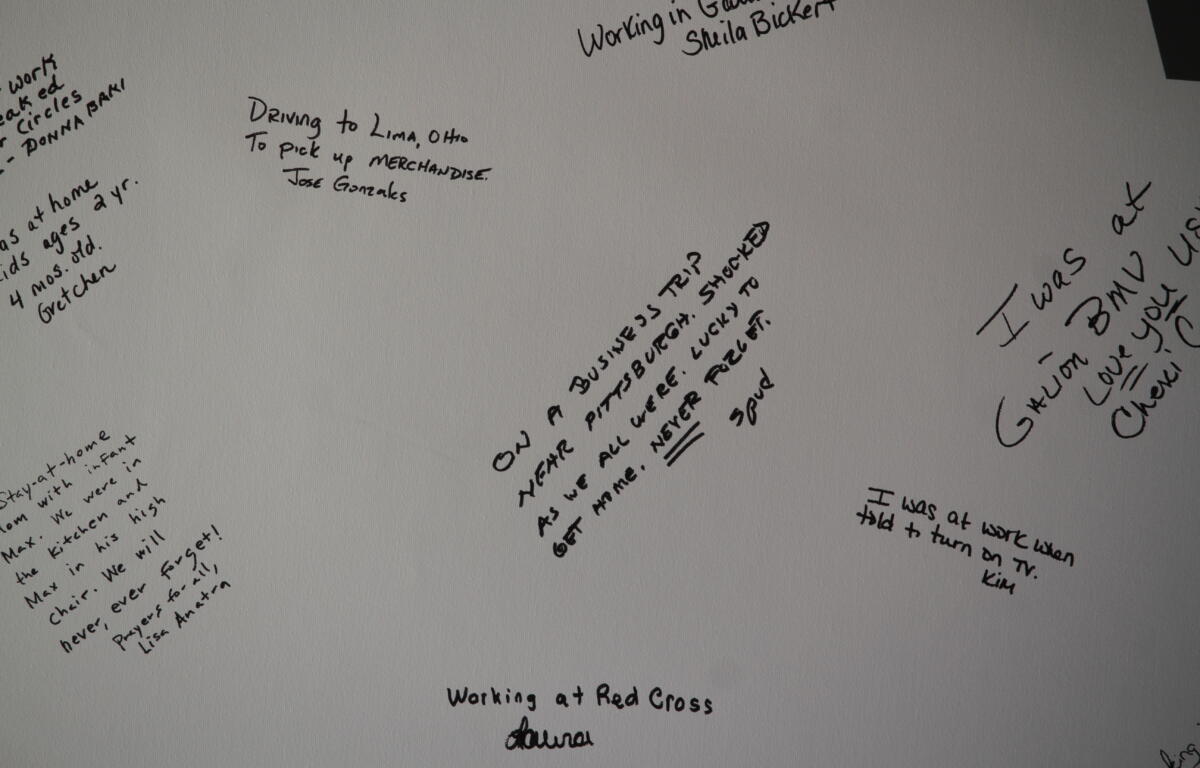 Working in
Sheila Bickert
work
eaked
r Circles
- DONNA BAKI
DRIVING to LIMA, OHIO
TO PICK up MERCHANDISE.
JOSE Gonzales
as at home
ids ages 2 yr.
4 mos. old.
Gretchen
ON A BUSINESS TRIP
NEAR PITTSBURGH. SHOCKED
AS WE ALL WERE. LUCKY TO
GET HOME. NEVER FORGET.
Spud
I was at
GALION BMV
Love you USA
Cheri C
Stay-at-home
Mom with infant
Max. We were in
the kitchen and
Max in his high
chair. We will
never, ever forget!
Prayers for all,
Lisa Anatra
I was at work when
told to turn on TV.
Kim
Working at Red Cross
Laura